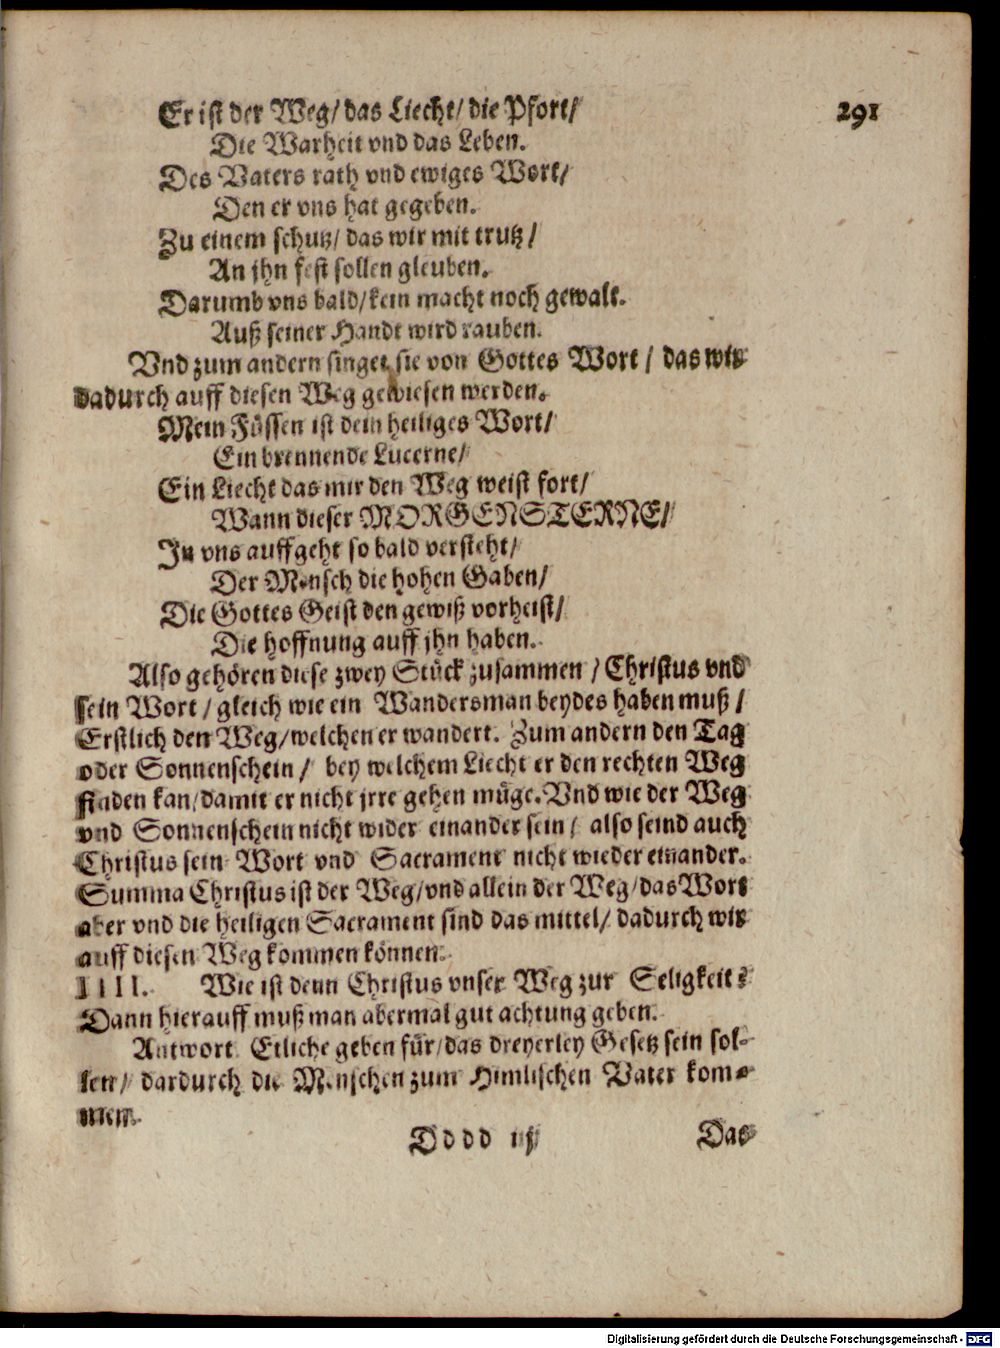 291
Er ist der Weg/ das Liecht/ die Pfort/
Die Warheit vnd das Leben.
Des Vaters rath vnd ewiges Wort/
Den er vns hat gegeben.
Zu einem schutz/ das wir mit trutz/
An jhn fest sollen gleuben.
Darumb vns bald/ kein macht noch gewalt.
Auß seiner Handt wird rauben.
Vnd zum andern singet sie von Gottes Wort/ das wir
dadurch auff diesen Weg gewiesen werden.
Mein Füssen ist dein heiliges Wort/
Ein brennende Lucerne/
Ein Liecht das mir den Weg weist fort/
Wann dieser MORGENSTERNE/
In vns auffgeht so bald versteht/
Der Mensch die hohen Gaben/
Die Gottes Geist den gewiß vorheist/
Die hoffnung auff jhn haben.
Also gehören diese zwey Stück zusammen/ Christus vnd
sein Wort/ gleich wie ein Wandersman beydes haben muß/
Erstlich den Weg/ welchen er wandert. Zum andern den Tag
oder Sonnenschein/ bey welchem Liecht er den rechten Weg
finden kan/ damit er nicht jrre gehen müge. Vnd wie der Weg
vnd Sonnenschein nicht wider einander sein/ also seind auch
Christus sein Wort vnd Sacrament nicht wieder einander.
Summa Christus ist der Weg/ vnd allein der Weg/ das Wort
aber vnd die heiligen Sacrament sind das mittel/ dadurch wir
auff diesen Weg kommen können.
IIII. Wie ist denn Christus vnser Weg zur Seligkeit?
Dann hierauff muß man abermal gut achtung geben.
Antwort. Etliche geben für/ das dreyerley Gesetz sein sol-
len/ dardurch die Menschen zum Himlischen Vater kom-
men.
Dddd ij Das
Digitalisierung gefördert durch die Deutsche Forschungsgemeinschaft - DFG